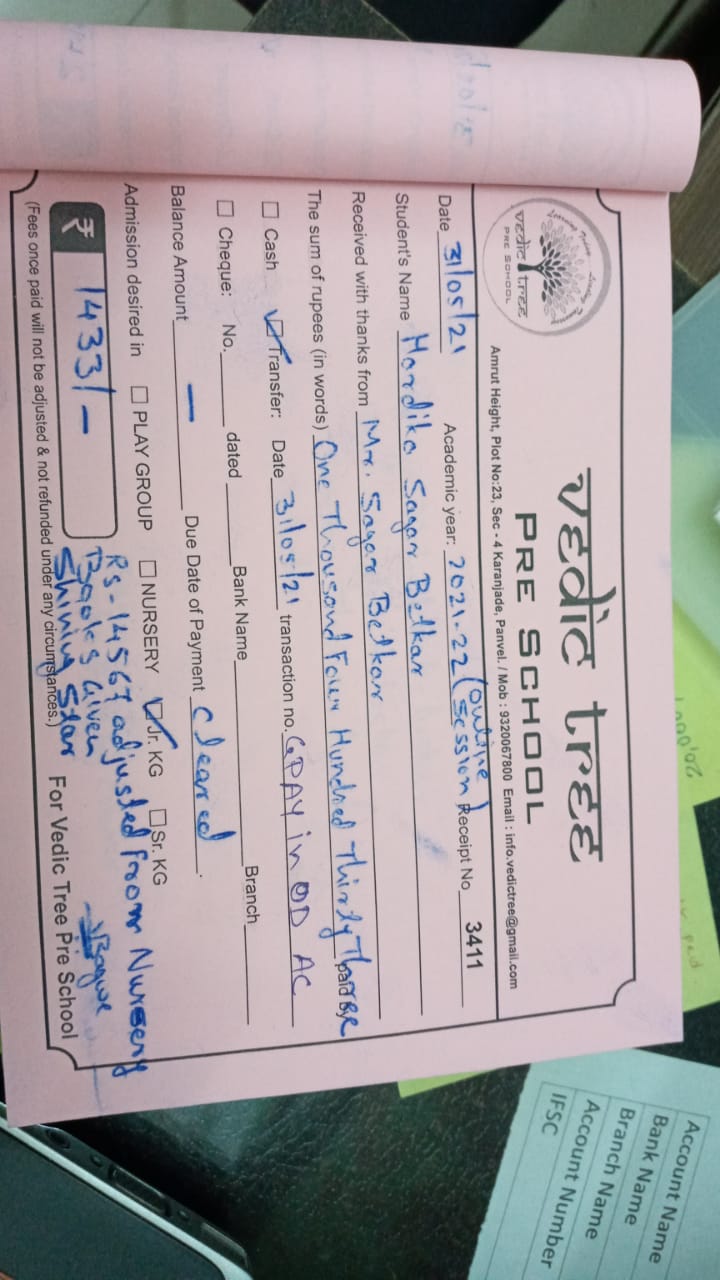 vedic tree
PRE SCHOOL
vedic tree
PRE SCHOOL
Amrut Height, Plot No:23, Sec - 4 Karanjade, Panvel. / Mob : 9320067800 Email : info.vedictree@gmail.com
Date 31/05/21 Academic year: 2021-22 (online session) Receipt No 3411
Student's Name Hardika Sagar Betkar
Received with thanks from Mr. Sagar Betkar
The sum of rupees (in words) One Thousand Four Hundred Thirty Three paid by
☐ Cash ☑ Transfer: Date 31/05/21 transaction no. GPAY in OD AC
☐ Cheque: No. dated Bank Name Branch
Balance Amount — Due Date of Payment Cleared.
Admission desired in ☐ PLAY GROUP ☐ NURSERY ☑ Jr. KG ☐ Sr. KG
₹ 1433/-
Rs-14567 adjusted from Nursery
Books Given
Shining Star
(Fees once paid will not be adjusted & not refunded under any circumstances.)
For Vedic Tree Pre School
Account Name
Bank Name
Branch Name
Account Number
IFSC